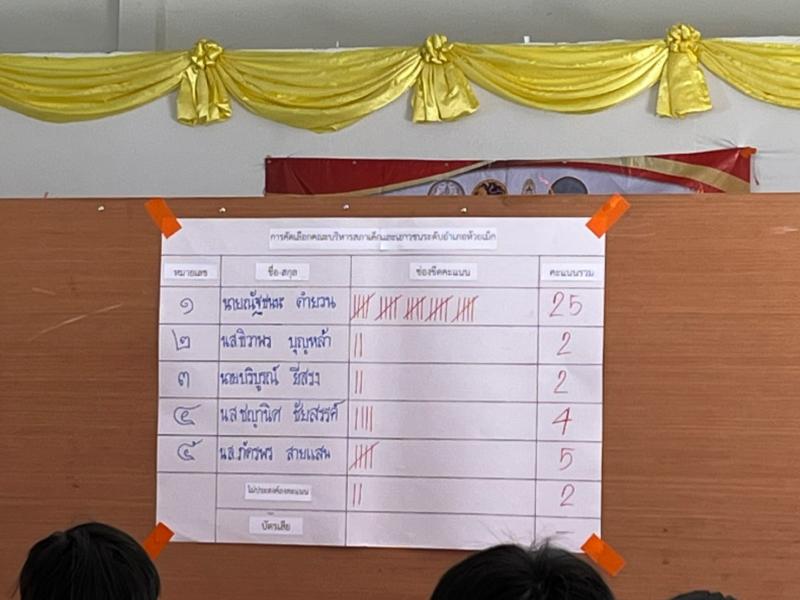 การคัดเลือกคณะบริหารสภาเด็กและเยาวชนระดับอำเภอห้วยเม็ก
หมายเลข ชื่อ-สกุล ช่องขีดคะแนน คะแนนรวม
๑ นายณัฐชนน คำยวน 25
๒ น.ส.ธิวาพร บุญหล้า 2
๓ นายบริบูรณ์ ยีสรง 2
๔ น.ส.ชญานิศ ชัยสรรค์ 4
๕ น.ส.ภัครพร สายแสน 5
ไม่ประสงค์ลงคะแนน 2
บัตรเสีย -